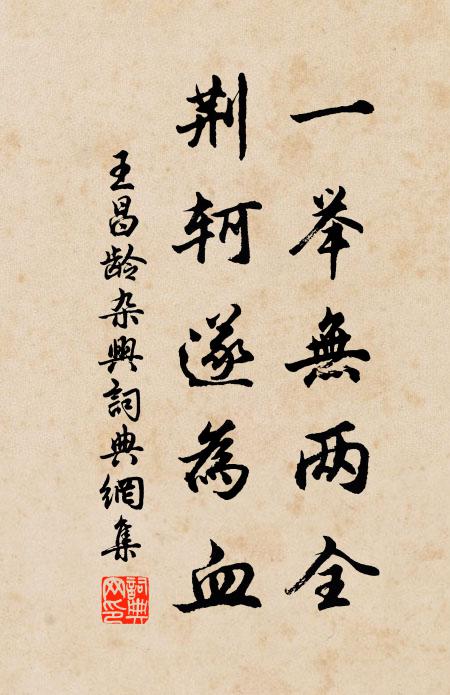 一举無两全
荆轲遂為血
王昌龄杂興詞典網集
詞典網印